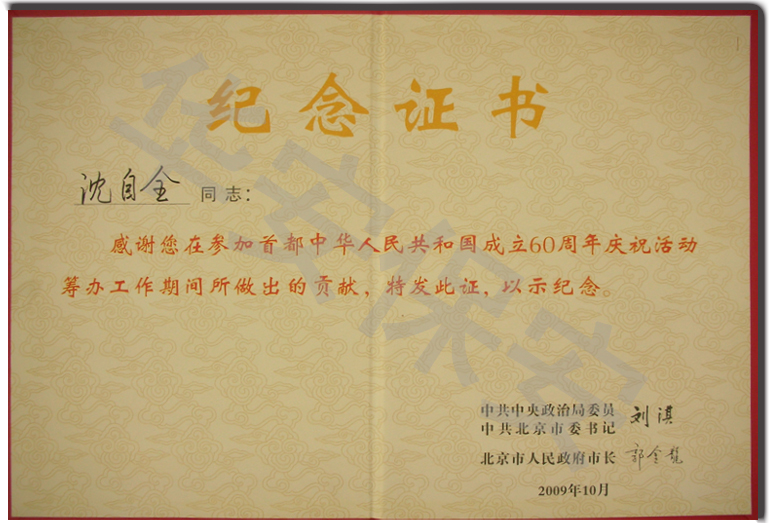 纪念证书
沈自全 同志：
感谢您在参加首都中华人民共和国成立60周年庆祝活动
筹办工作期间所做出的贡献，特发此证，以示纪念。
中共中央政治局委员
中共北京市委书记 刘淇
北京市人民政府市长 郭金龙
2009年10月
华安保安